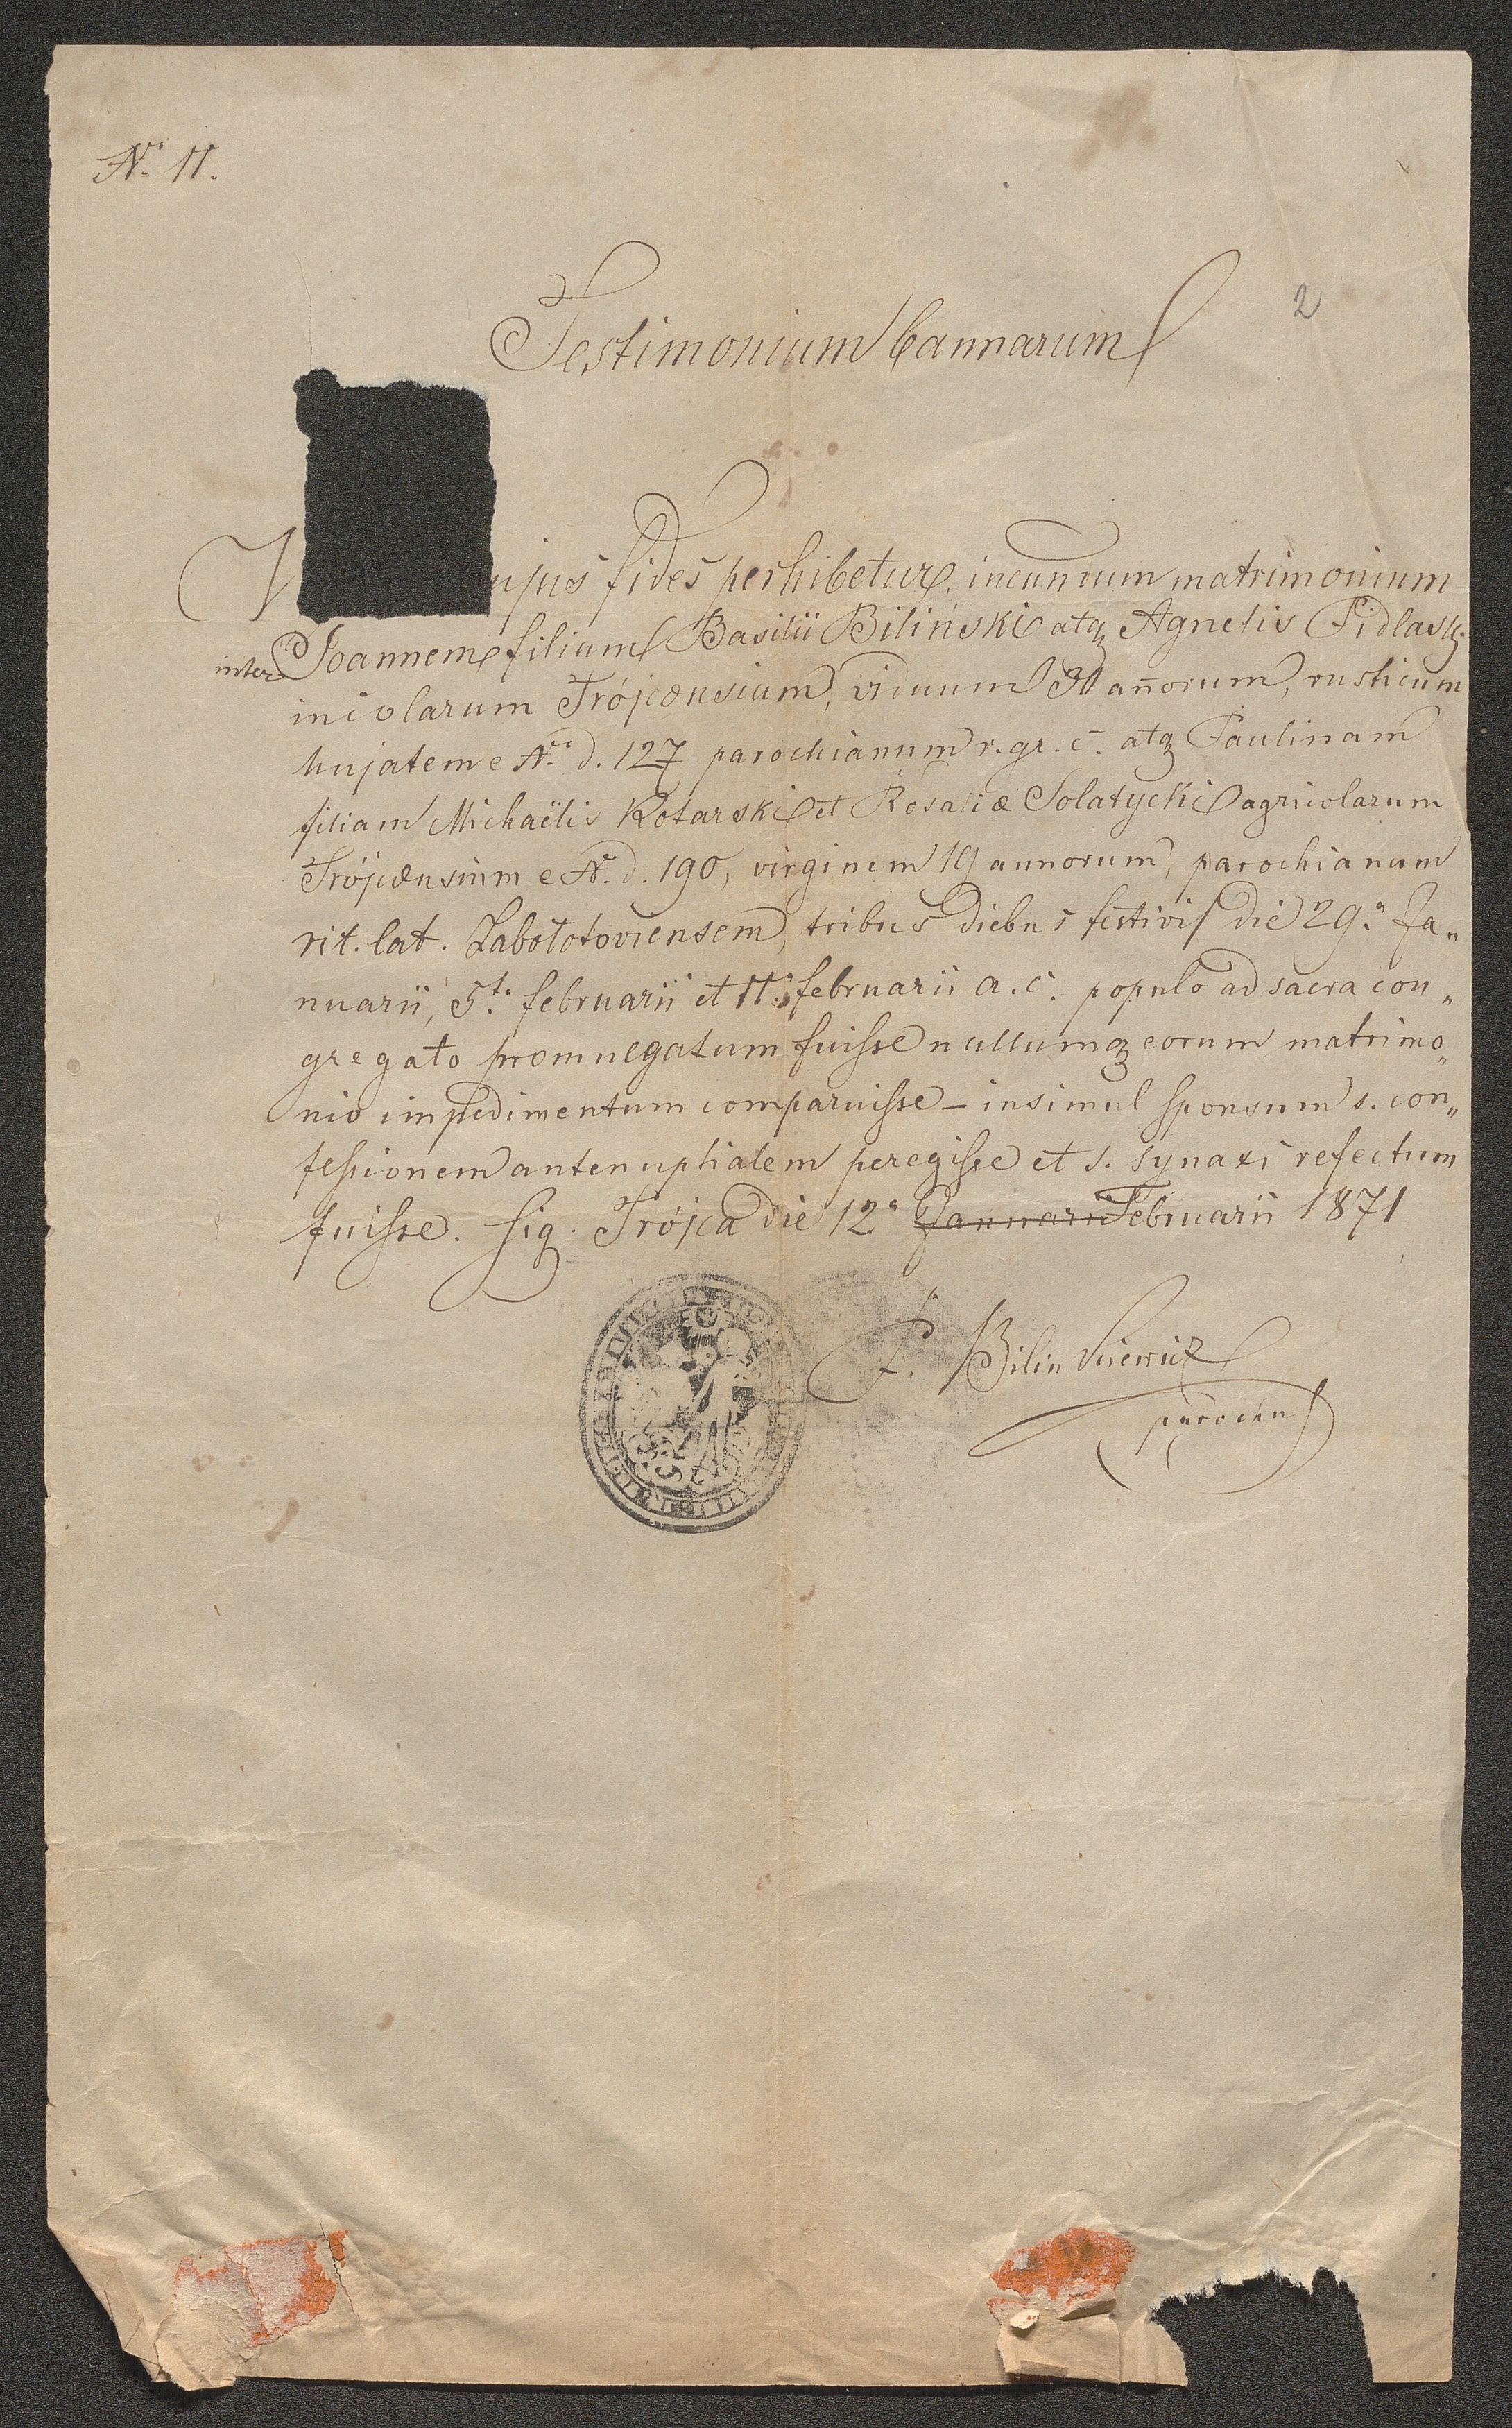 Nr. 11.
2
Testimonium bannarum
V ujus fides perhibetur, incundum matrimonium
inter Joannem filium Basilii Biliński atq Agnetis Pidlask.
incolarum Trójcænsium, viduum 30 añorum, rusticum
hujatem e Nr. d. 127 parochianum r. gr. c. atq Paulinam
filiam Michaëlis Kotarski et Rosaliæ Solatycki agricolarum
Trójcænsium e Nr. d. 190, virginem 19 annorum, parochianam
rit. lat. Zabołotoviensem, tribus diebus festivis die 29a Ja„
nuarii, 5ta februarii et 11a februarii a. c. populo ad sacra con„
gregato promulgatum fuisse nullumq eorum matrimo„
nio impedimentum comparuisse – insimul sponsum s. con„
fessionem antenuptialem peregisse et s. synaxi refectum
fuisse. Sig. Trójca die 12a Januarii Februarii 1871
parochus